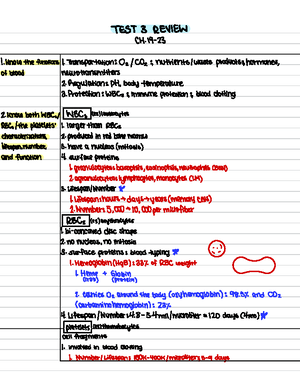 TEST 3 REVIEW
CH. 19-23
1. Know the functions of blood
1. Transportation: O₂ / CO₂ ; nutrients/waste products, hormones,
neurotransmitters
2. Regulation: pH, body temperature
3. Protection: WBCs ; immune protection ; blood clotting
2. Know both WBCs/
RBCs/the platelets'
characteristics,
lifespan, number,
and function
WBCs leukocytes
1. larger than RBCs
2. produced in red bone marrow
3. have a nucleus (mitosis)
4. surface proteins
1. granulocytes: basophils, eosinophils, neutrophils (BEN)
2. agranulocytes: lymphocytes, monocytes (LM)
3. Lifespan/Number
1. Lifespan: hours → days → years (memory cells)
2. Number: 5,000 – 10,000 per microliter
RBCs erythrocytes
1. bi-concaved disc shape
2. no nucleus, no mitosis
3. surface proteins: blood typing
1. Hemoglobin (HgB): 33% of RBC weight
1. Heme + Globin
(iron) (protein)
2. carries O₂ around the body (oxyhemoglobin): 98.5% and CO₂
(carbaminohemoglobin): 23%
4. Lifespan / Number: 4.8-5.4 mil/microliter = 120 days (4mo)
platelets thrombocytes
cell fragments
1. involved in blood clotting
1. Number / Lifespan: 150K-400K /microliter; 5-9 days